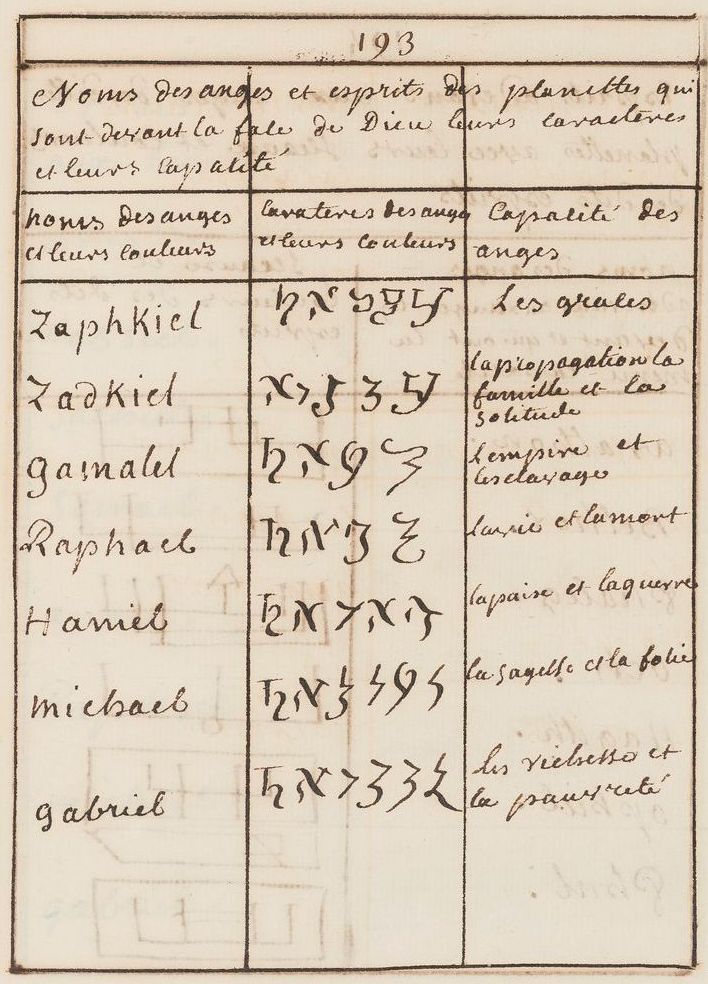 193
Noms des anges et esprits des planettes qui
sont devant la face de Dieu leurs caracteres
et leurs capacité
noms des anges
et leurs couleurs
carateres des anges
et leurs couleurs
Capacité des
anges
Zaphkiel
Les graces
Zadkiel
la propagation la
famille et la
solitude
gamalel
L'empire et
lesclavage
Raphael
la vie et la mort
Haniel
la paise et la guerre
michael
la sagesse et la folie
gabriel
Les richesse et
la pauvreté